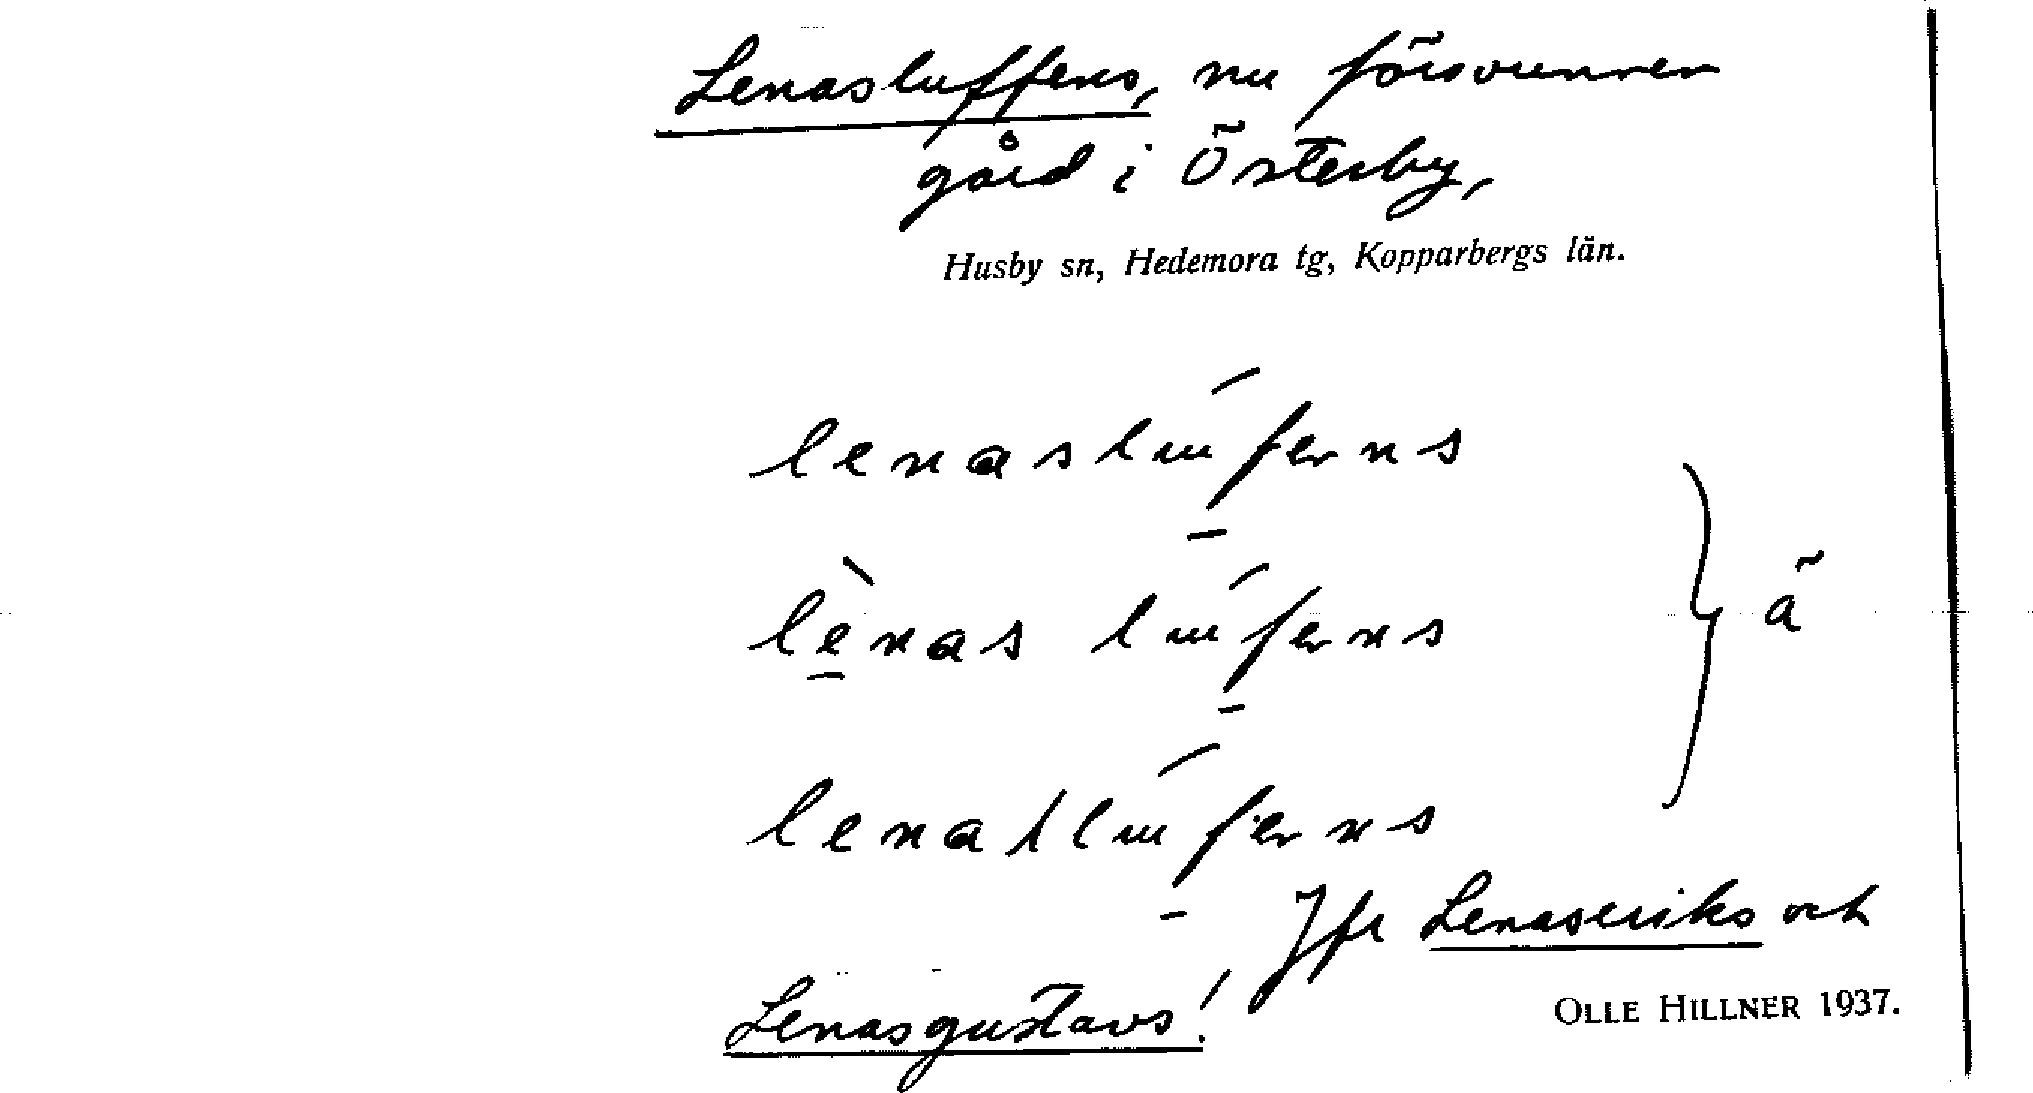 Lenasluffens, nu försvunnen
gård i Österby,
Husby sn, Hedemora tg, Kopparbergs län.
lenaslúferns
lènas lúferns
lenaslúferns
} ä
Jfr Lenaseriks och
Lenasgustavs!
OLLE HILLNER 1937.